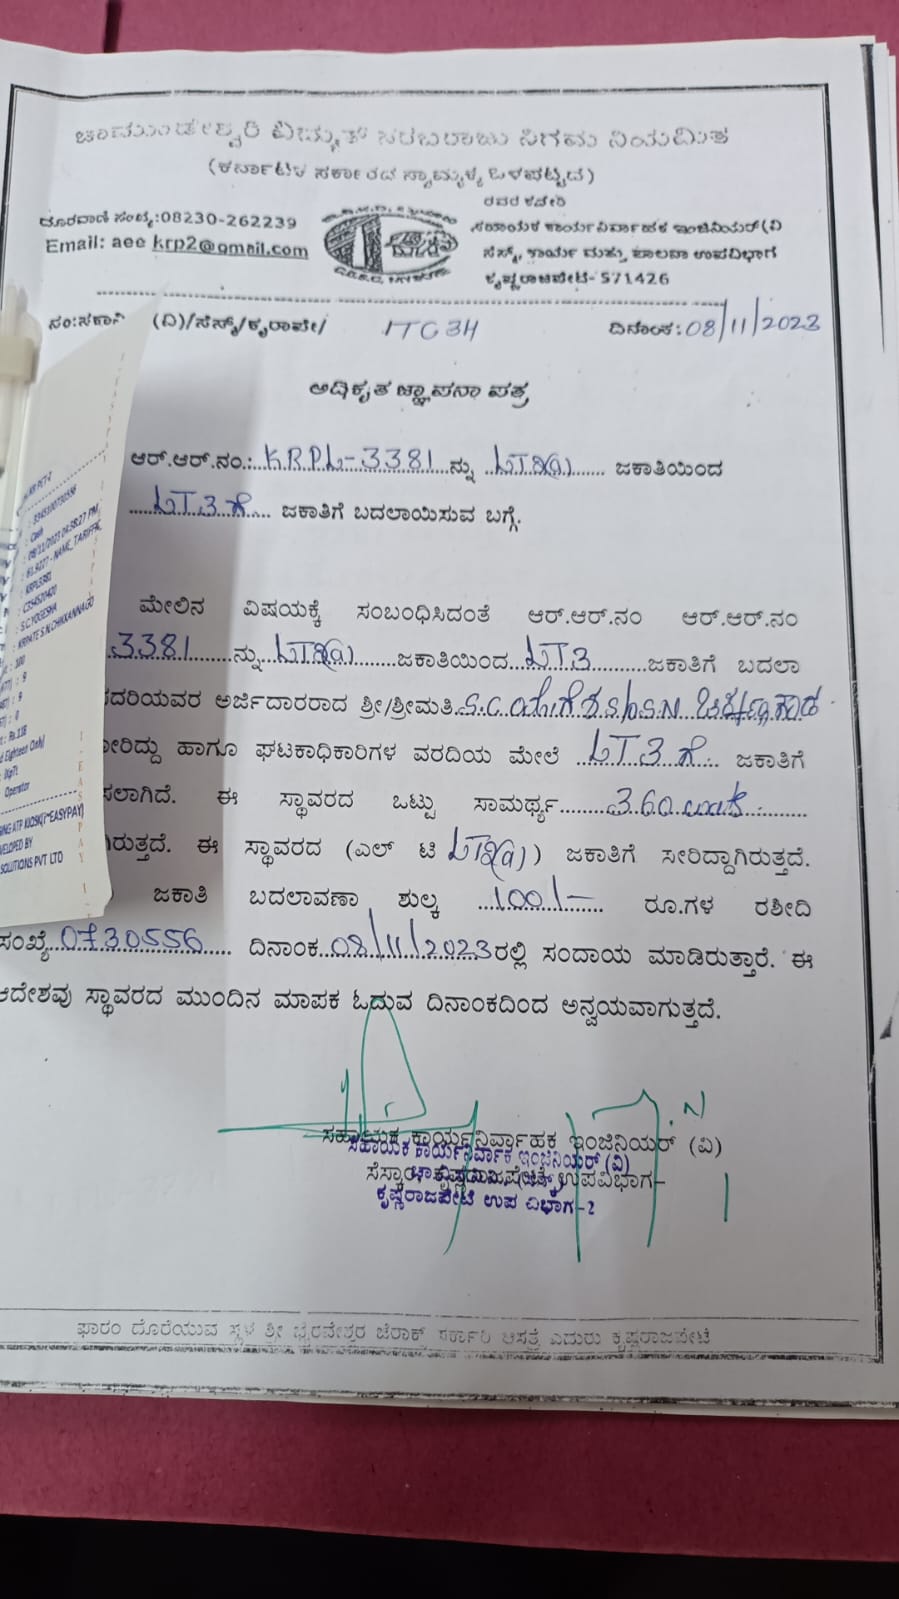 ಚಾಮುಂಡೇಶ್ವರಿ ವಿದ್ಯುತ್ ಸರಬರಾಜು ನಿಗಮ ನಿಯಮಿತ
(ಕರ್ನಾಟಕ ಸರ್ಕಾರದ ಸ್ವಾಮ್ಯಕ್ಕೆ ಒಳಪಟ್ಟಿದೆ)
ರವರ ಕಚೇರಿ
ದೂರವಾಣಿ ಸಂಖ್ಯೆ:08230-262239
ಸಹಾಯಕ ಕಾರ್ಯನಿರ್ವಾಹಕ ಇಂಜಿನಿಯರ್(ವಿ
Email: aee krp2@gmail.com
ಸೆಸ್ಕ್, ಕಾರ್ಯ ಮತ್ತು ಪಾಲನಾ ಉಪವಿಭಾಗ
ಕೃಷ್ಣರಾಜಪೇಟೆ- 571426
ನಂ:ಸಕಾನಿ (ವಿ)/ಸೆಸ್ಕ್/ಕೃರಾಪೇ/ ದಿನಾಂಕ:08/11/2023
ಅಧಿಕೃತ ಜ್ಞಾಪನಾ ಪತ್ರ
ಆರ್.ಆರ್.ನಂ.:KRPL-3381 ನ್ನು LT2(a) ಜಕಾತಿಯಿಂದ
LT3 ಗೆ ಜಕಾತಿಗೆ ಬದಲಾಯಿಸುವ ಬಗ್ಗೆ.
ಮೇಲಿನ ವಿಷಯಕ್ಕೆ ಸಂಬಂಧಿಸಿದಂತೆ ಆರ್.ಆರ್.ನಂ ಆರ್.ಆರ್.ನಂ
3381 ನ್ನು LT2(a) ಜಕಾತಿಯಿಂದ LT3 ಜಕಾತಿಗೆ ಬದಲಾ
ಅರ್ಜಿದಾರರಾದ ಶ್ರೀ/ಶ್ರೀಮತಿ S.C ಯೋಗೇಶ S/o S.N ಚಿಕ್ಕಣ್ಣಗೌಡ
ಹಾಗೂ ಘಟಕಾಧಿಕಾರಿಗಳ ವರದಿಯ ಮೇಲೆ LT3 ಗೆ ಜಕಾತಿಗೆ
ಸಲಾಗಿದೆ. ಈ ಸ್ಥಾವರದ ಒಟ್ಟು ಸಾಮರ್ಥ್ಯ 360 watts
ಿರುತ್ತದೆ. ಈ ಸ್ಥಾವರದ (ಎಲ್ ಟಿ LT2(a)) ಜಕಾತಿಗೆ ಸೇರಿದ್ದಾಗಿರುತ್ತದೆ.
ಜಕಾತಿ ಬದಲಾವಣಾ ಶುಲ್ಕ 100/- ರೂ.ಗಳ ರಶೀದಿ
ಸಂಖ್ಯೆ 0730556 ದಿನಾಂಕ 08/11/2023 ರಲ್ಲಿ ಸಂದಾಯ ಮಾಡಿರುತ್ತಾರೆ. ಈ
ಆದೇಶವು ಸ್ಥಾವರದ ಮುಂದಿನ ಮಾಪಕ ಓದುವ ದಿನಾಂಕದಿಂದ ಅನ್ವಯವಾಗುತ್ತದೆ.
ಸಹಾಯಕ ಕಾರ್ಯನಿರ್ವಾಹಕ ಇಂಜಿನಿಯರ್ (ವಿ)
ಸಹಾಯಕ ಕಾರ್ಯನಿರ್ವಾಹಕ ಇಂಜಿನಿಯರ್ (ವಿ)
ಉಪವಿಭಾಗ-
ಕೃಷ್ಣರಾಜಪೇಟೆ ಉಪ ವಿಭಾಗ-2
ಫಾರಂ ದೊರೆಯುವ ಸ್ಥಳ ಶ್ರೀ ಭೈರವೇಶ್ವರ ಜೆರಾಕ್ಸ್ ಸರ್ಕಾರಿ ಆಸ್ಪತ್ರೆ ಎದುರು ಕೃಷ್ಣರಾಜಪೇಟೆ
: Cash
: 08/11/2023 04:58:27 PM
: KRPL3381
: S.C.YOGESHA
: 100
: 9
: 9
: 0
: Rs.118
Eighteen Only)
Operator
SOLUTIONS PVT LTD